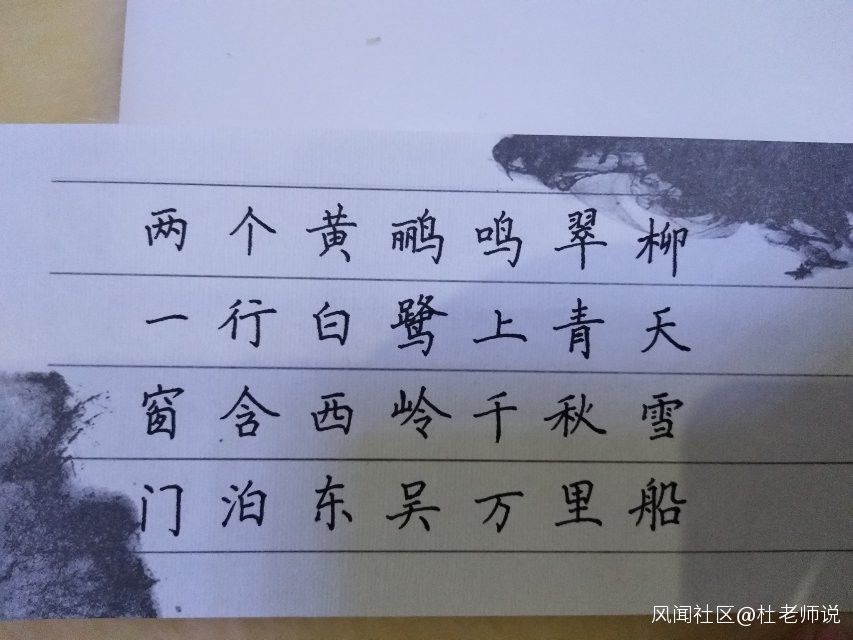 两个黄鹂鸣翠柳
一行白鹭上青天
窗含西岭千秋雪
门泊东吴万里船
风闻社区@杜老师说